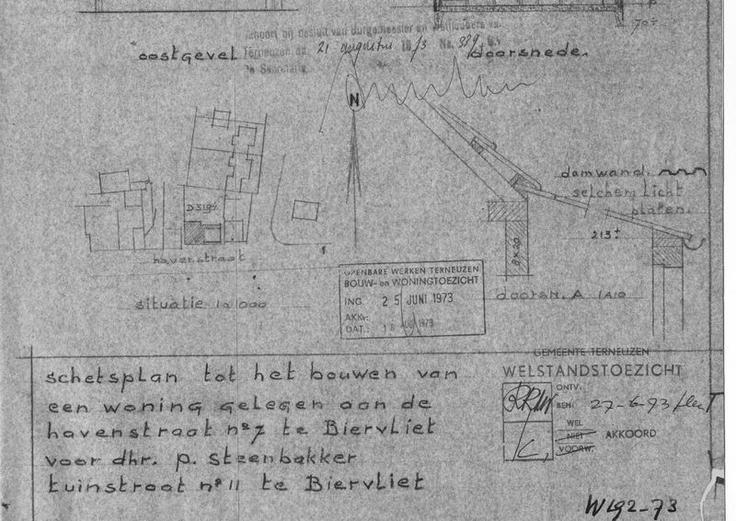 70+
behoort bij besluit van burgemeester en wethouders van
Terneuzen dd. 21 augustus 1973 No. 389
De Secretaris
oostgevel
doorsnede.
N
damwand.
selchem licht
platen.
213+
D 319
8x20
havenstraat
situatie 1a1000
OPENBARE WERKEN TERNEUZEN
BOUW- en WONINGTOEZICHT
ING. 25 JUNI 1973
AKK:
DAT.: 1973
doorsn. A 1a10
GEMEENTE TERNEUZEN
WELSTANDSTOEZICHT
ONTV.
BEH: 27-6-73
WEL
NIET AKKOORD
VOORW.
schetsplan tot het bouwen van
een woning gelegen aan de
havenstraat nº 7 te Biervliet
voor dhr. p. steenbakker
tuinstraat nº 11 te Biervliet
W192-73